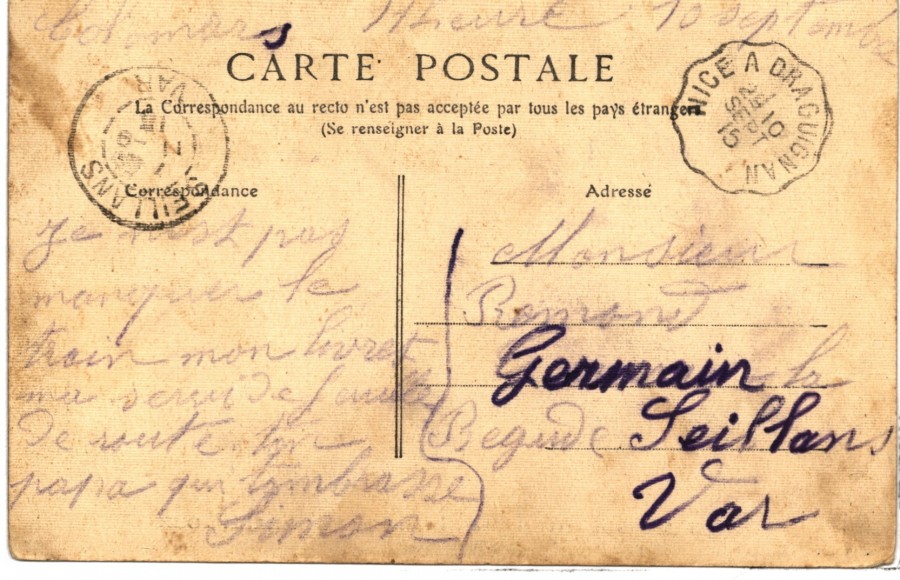 Colmars 10 septembre
CARTE POSTALE
La Correspondance au recto n'est pas acceptée par tous les pays étrangers
(Se renseigner à la Poste)
NICE A DRAGUIGNAN
10
SEPT
15
SEILLANS
VAR
Correspondance
Adresse
Je n'est pas
manquer le
train mon livret
ma servi de feuille
de route ton
papa qui t'embrasse
Simon
Monsieur
Romond
Germain
Begude Seillans
Var